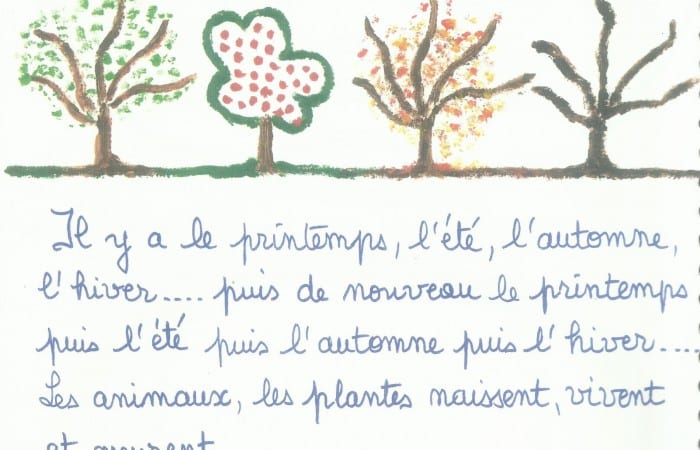 Il y a le printemps, l'été, l'automne,
l'hiver.... puis de nouveau le printemps
puis l'été puis l'automne puis l'hiver....
Les animaux, les plantes naissent, vivent
et meurent